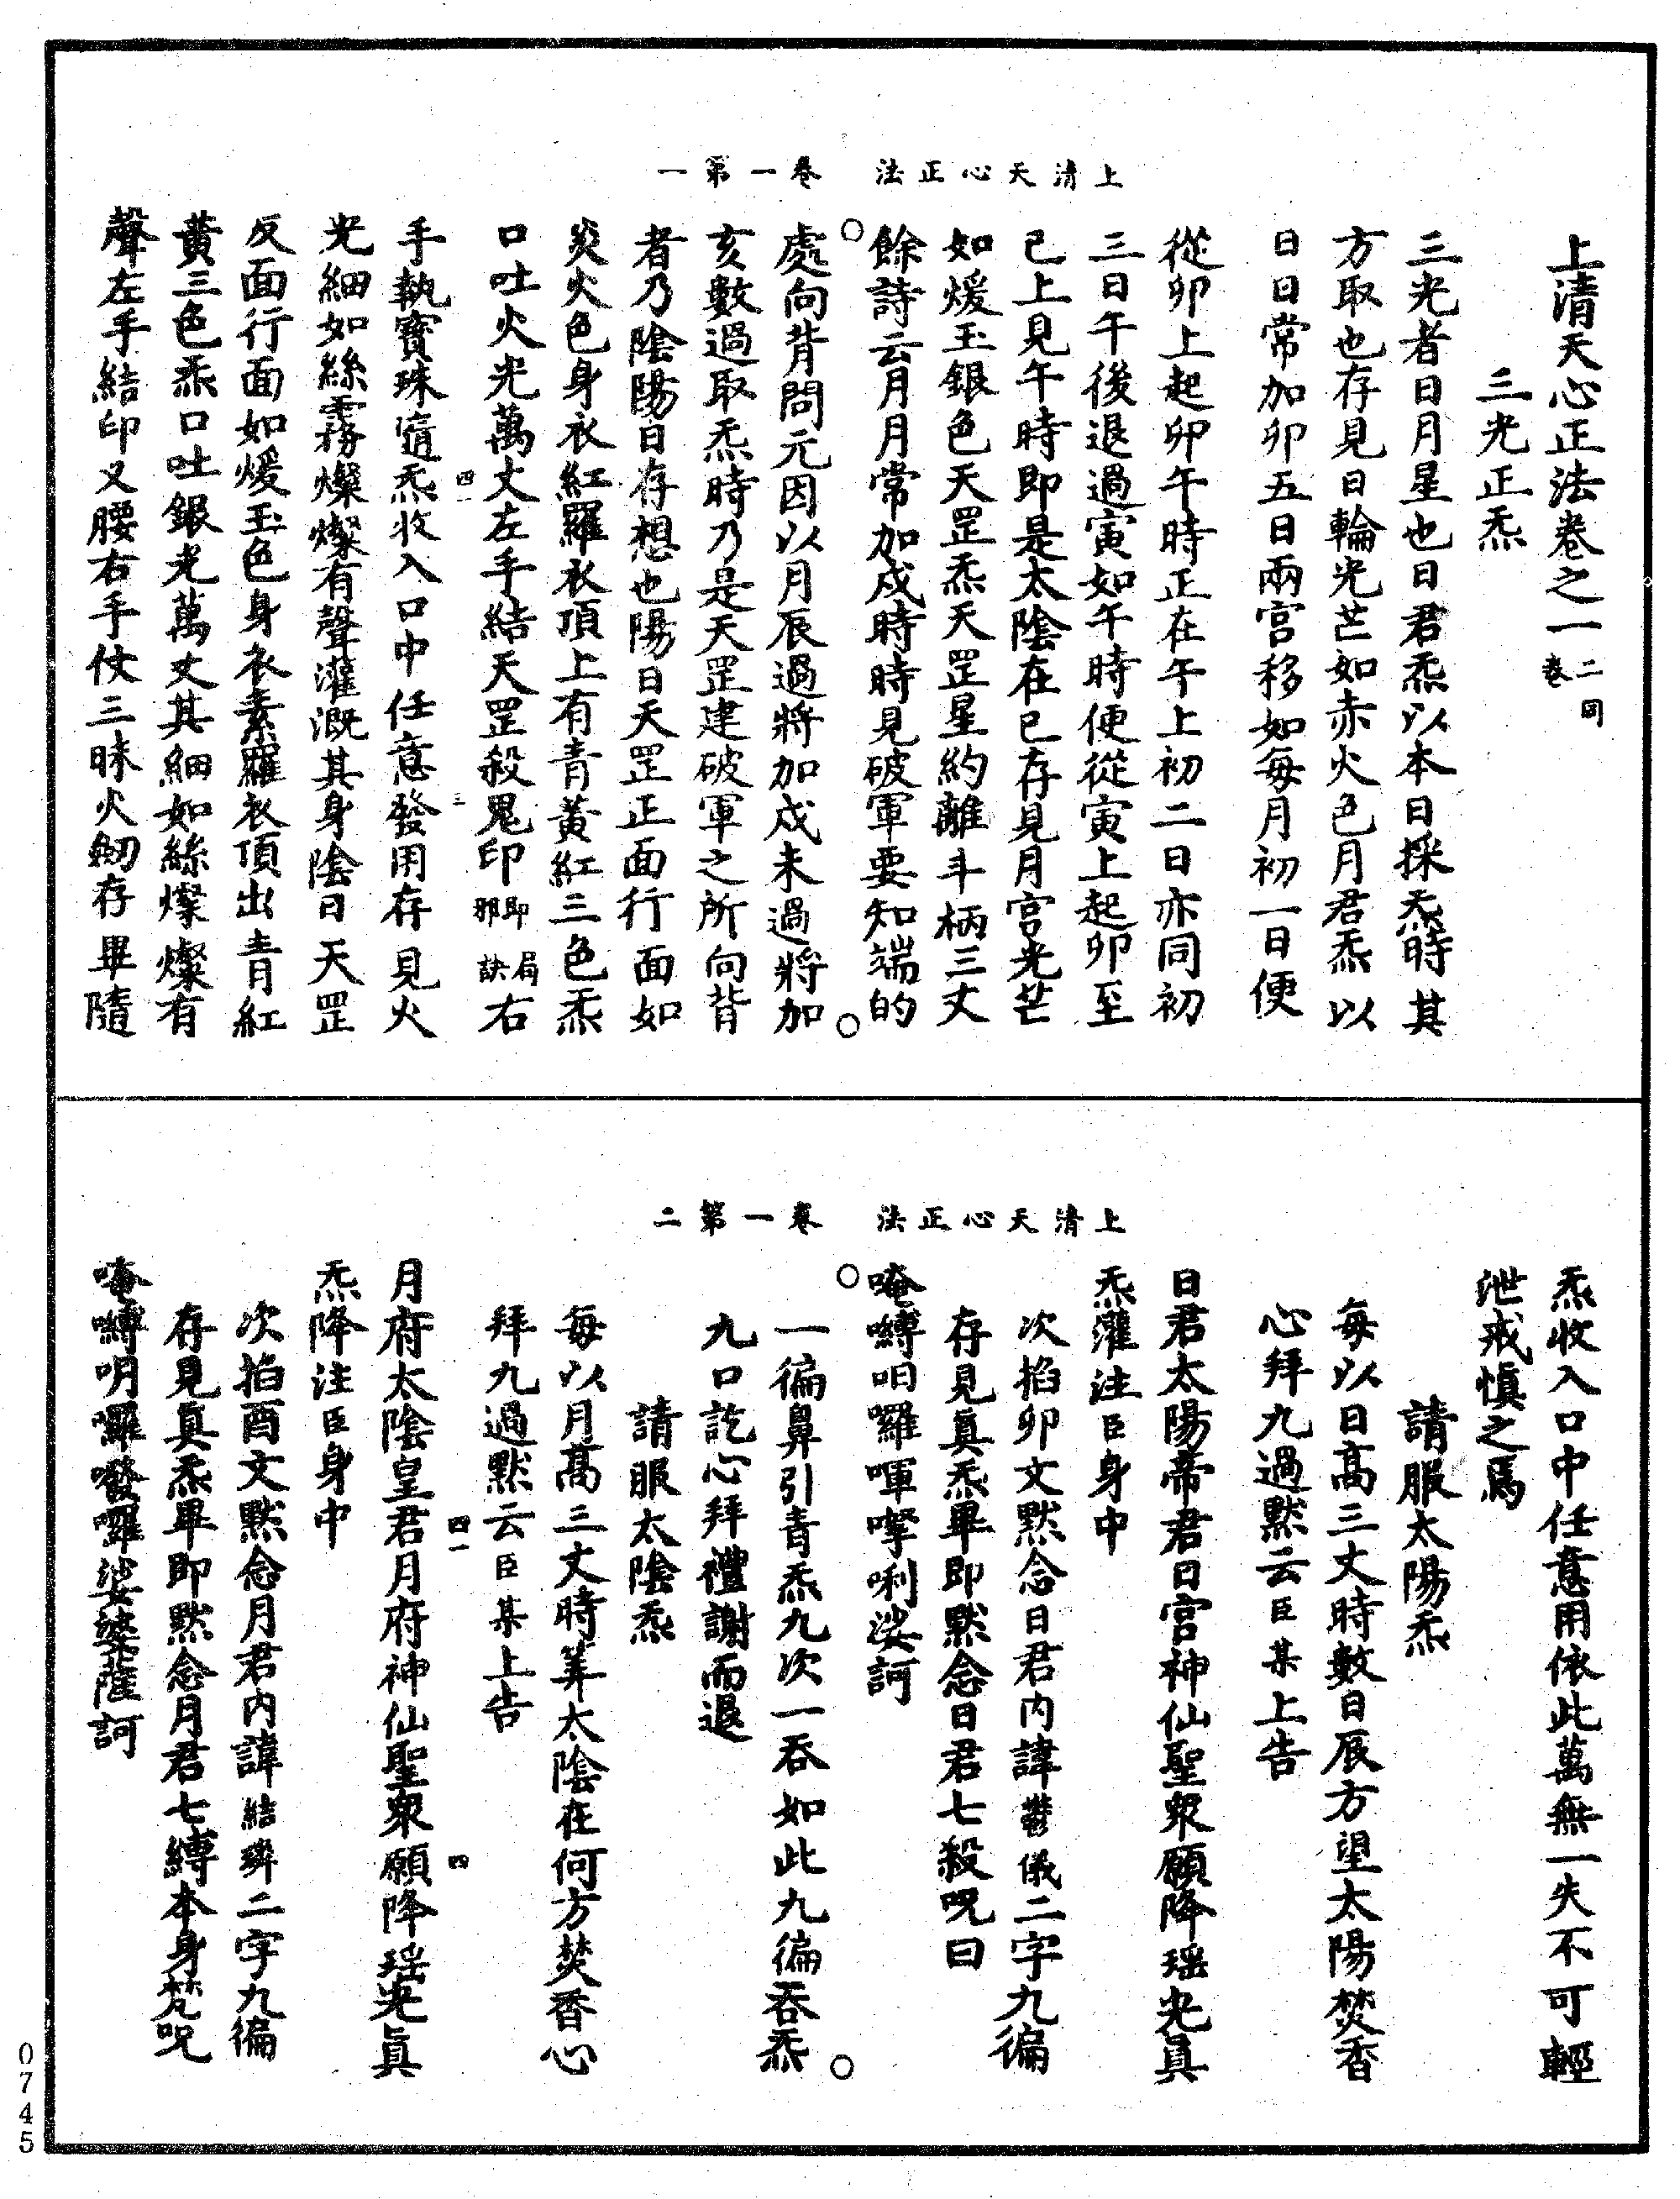 上清天心正法卷第一　一
上清天心正法卷之一 二同卷
三光正炁
三光者日月星也日君炁以本日採炁時其
方取也存見日輪光芒如赤火色月君炁以
日日常加卯五日兩宮移如每月初一日便
從卯上起卯午時正在午上初二日亦同初
三日午後退過寅如午時便從寅上起卯至
巳上見午時即是太陰在巳存見月宮光芒
如煖玉銀色天罡炁天罡星約離斗柄三丈
餘詩云月月常加戌時時見破軍要知端的
處向背問元因以月辰過將加戌未過將加
亥數過取炁時乃是天罡建破軍之所向背
者乃陰陽日存想也陽日天罡正面行面如
炎火色身衣紅羅衣頂上有青黃紅三色炁
口吐火光萬丈左手結天罡殺鬼印即邪局訣右
手執寶珠隨炁收入口中任意發用存見火
光細如絲霧燦燦有聲灌溉其身陰日天罡
反面行面如煖玉色身衣素羅衣頂出青紅
黃三色炁口吐銀光萬丈其細如絲燦燦有
聲左手結印叉腰右手仗三昧火劒存畢隨
四一
三
上清天心正法卷一第二
炁收入口中任意用依此萬無一失不可輕
泄戒慎之焉
請服太陽炁
每以日高三丈時數日辰方望太陽焚香
心拜九過默云臣某上告
日君太陽帝君日宮神仙聖眾願降瑶光真
炁灌注臣身中
次掐卯文默念日君內諱鬱儀二字九徧
存見真炁畢即默念日君七殺呪曰
唵嚩咱囉㖶拏唎娑訶
一徧鼻引青炁九次一吞如此九徧吞炁
九口訖心拜禮謝而退
請服太陰炁
每以月高三丈時筭太陰在何方焚香心
拜九過默云臣某上告
月府太陰皇君月府神仙聖眾願降瑶光真
炁降注臣身中
次掐酉文默念月君內諱結璘二字九徧
存見真炁畢即默念月君七縛本身梵呪
唵嚩明囉𠿒囉娑婆薩訶
四一
四
0745